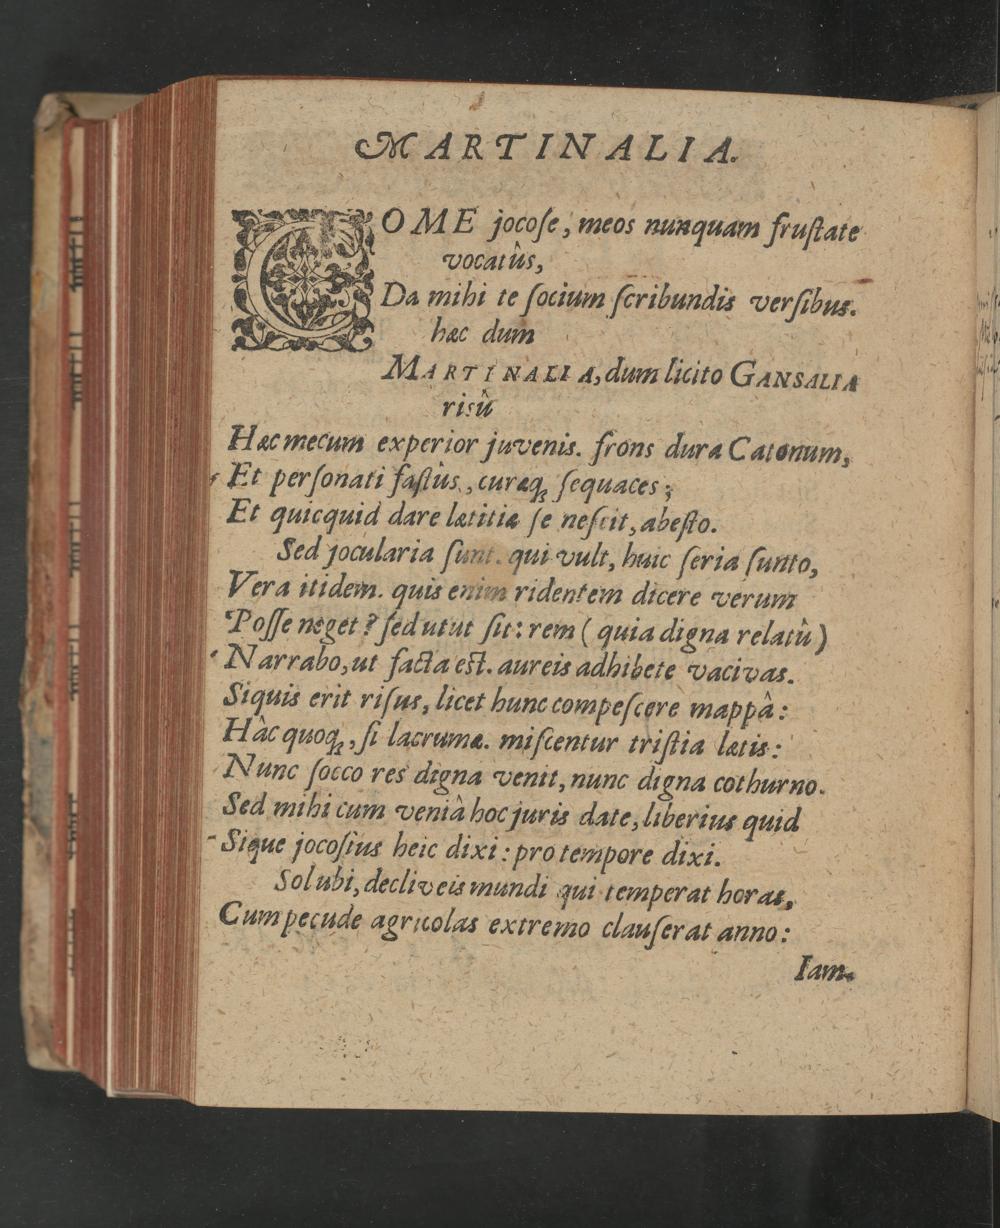 MARTINALIA.
COME jocoſe, meos nunquam fruſtate
vocatûs,
Da mihi te ſocium ſcribundis verſibus.
hæc dum
MARTINALIA, dum licito GANSALIA
risû
Hæc mecum experior juvenis. frons dura Catonum,
Et perſonati faſtûs, curæq; ſequaces;
Et quicquid dare lætitiæ ſe neſcit, abeſto.
Sed jocularia ſunt. qui vult, huic ſeria ſunto,
Vera itidem. quis enim ridentem dicere verum
Poſſe neget? ſed utut ſit: rem ( quia digna relatû )
Narrabo, ut facta eſt. aureis adhibete vacivas.
Siquis erit riſus, licet hunc compeſcere mappâ:
Hâc quoq;, ſi lacrumæ. miſcentur triſtia lætis:
Nunc ſocco res digna venit, nunc digna cothurno.
Sed mihi cum veniâ hoc juris date, liberius quid
Sique jocoſius heic dixi: pro tempore dixi.
Sol ubi, decliveis mundi qui temperat horas,
Cum pecude agricolas extremo clauſerat anno:
Iam